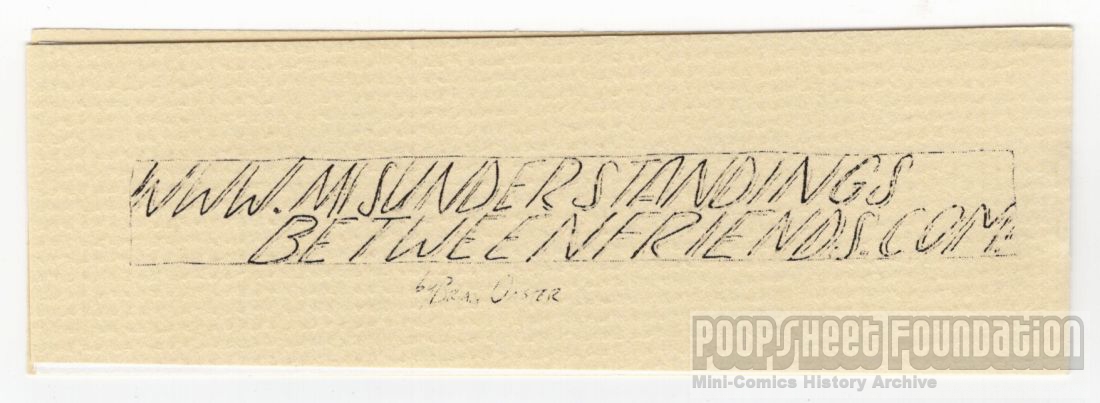 WWW.MISUNDERSTANDINGS
BETWEENFRIENDS.COM
by Brad Oyster
POOPSHEET FOUNDATION
Mini-Comics History Archive